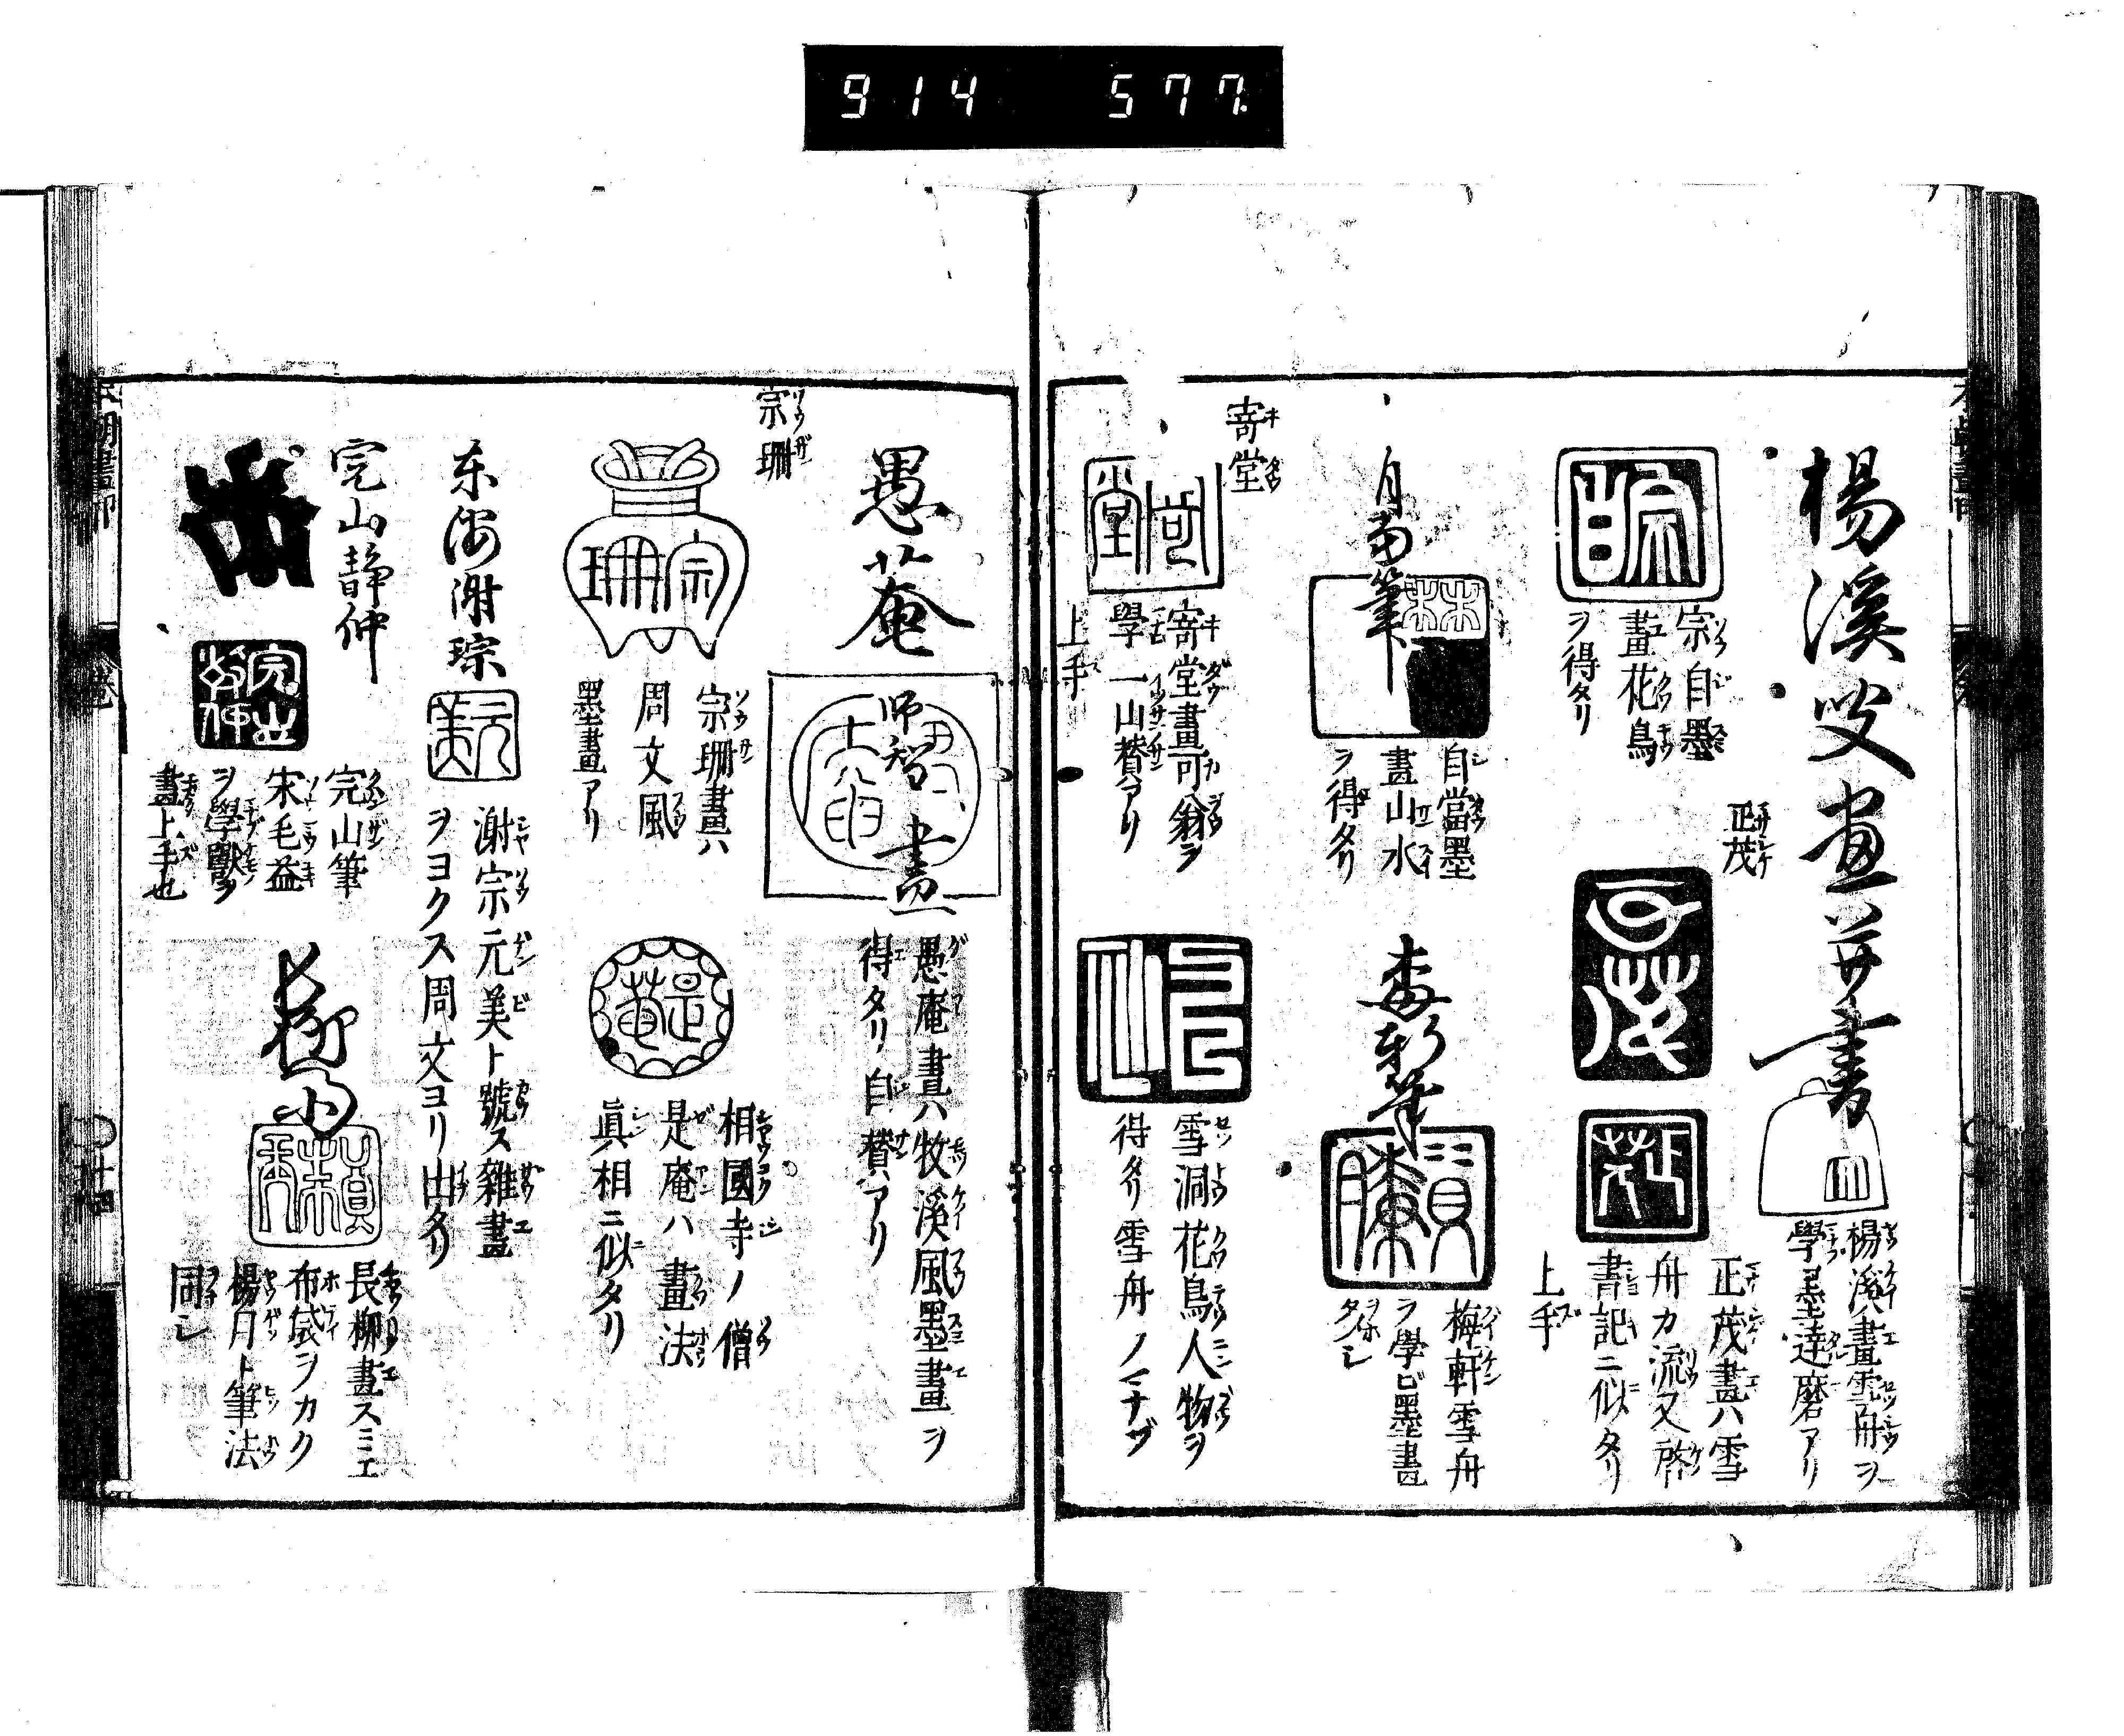 914 577
楊溪叟画并書
楊溪畫雪舟ヲ
學墨達磨アリ
宗自墨
畫花鳥
ヲ得タリ
正茂
正茂畫ハ雪
舟カ流又啓
書記ニ似タリ
上手
自當筆
自當墨
畫山水
ヲ得タリ
梅軒筆
梅軒雪舟
ヲ學ビ墨畫
寄堂
寄堂畫可翁ヲ
學一山賛アリ
上手
雪洞花鳥人物ヲ
得タリ雪舟ノ
愚菴
師智畫
愚庵畫ハ牧溪風墨畫ヲ
得タリ自賛アリ
宗珊
宗珊
宗珊畫ハ
周文風
墨畫アリ
是菴
相國寺ノ僧
是庵ハ畫法
眞相ニ似タリ
東海謝琮
謝宗元美ト號ス雜畫
ヲヨクス周文ヨリ出タリ
完山靜仲
完山筆
宋毛益
ヲ學獸ヲ
畫上手也
長柳畫スミエ
布袋ヲカク
楊月ト筆法
同シ
本朝畫印
巻